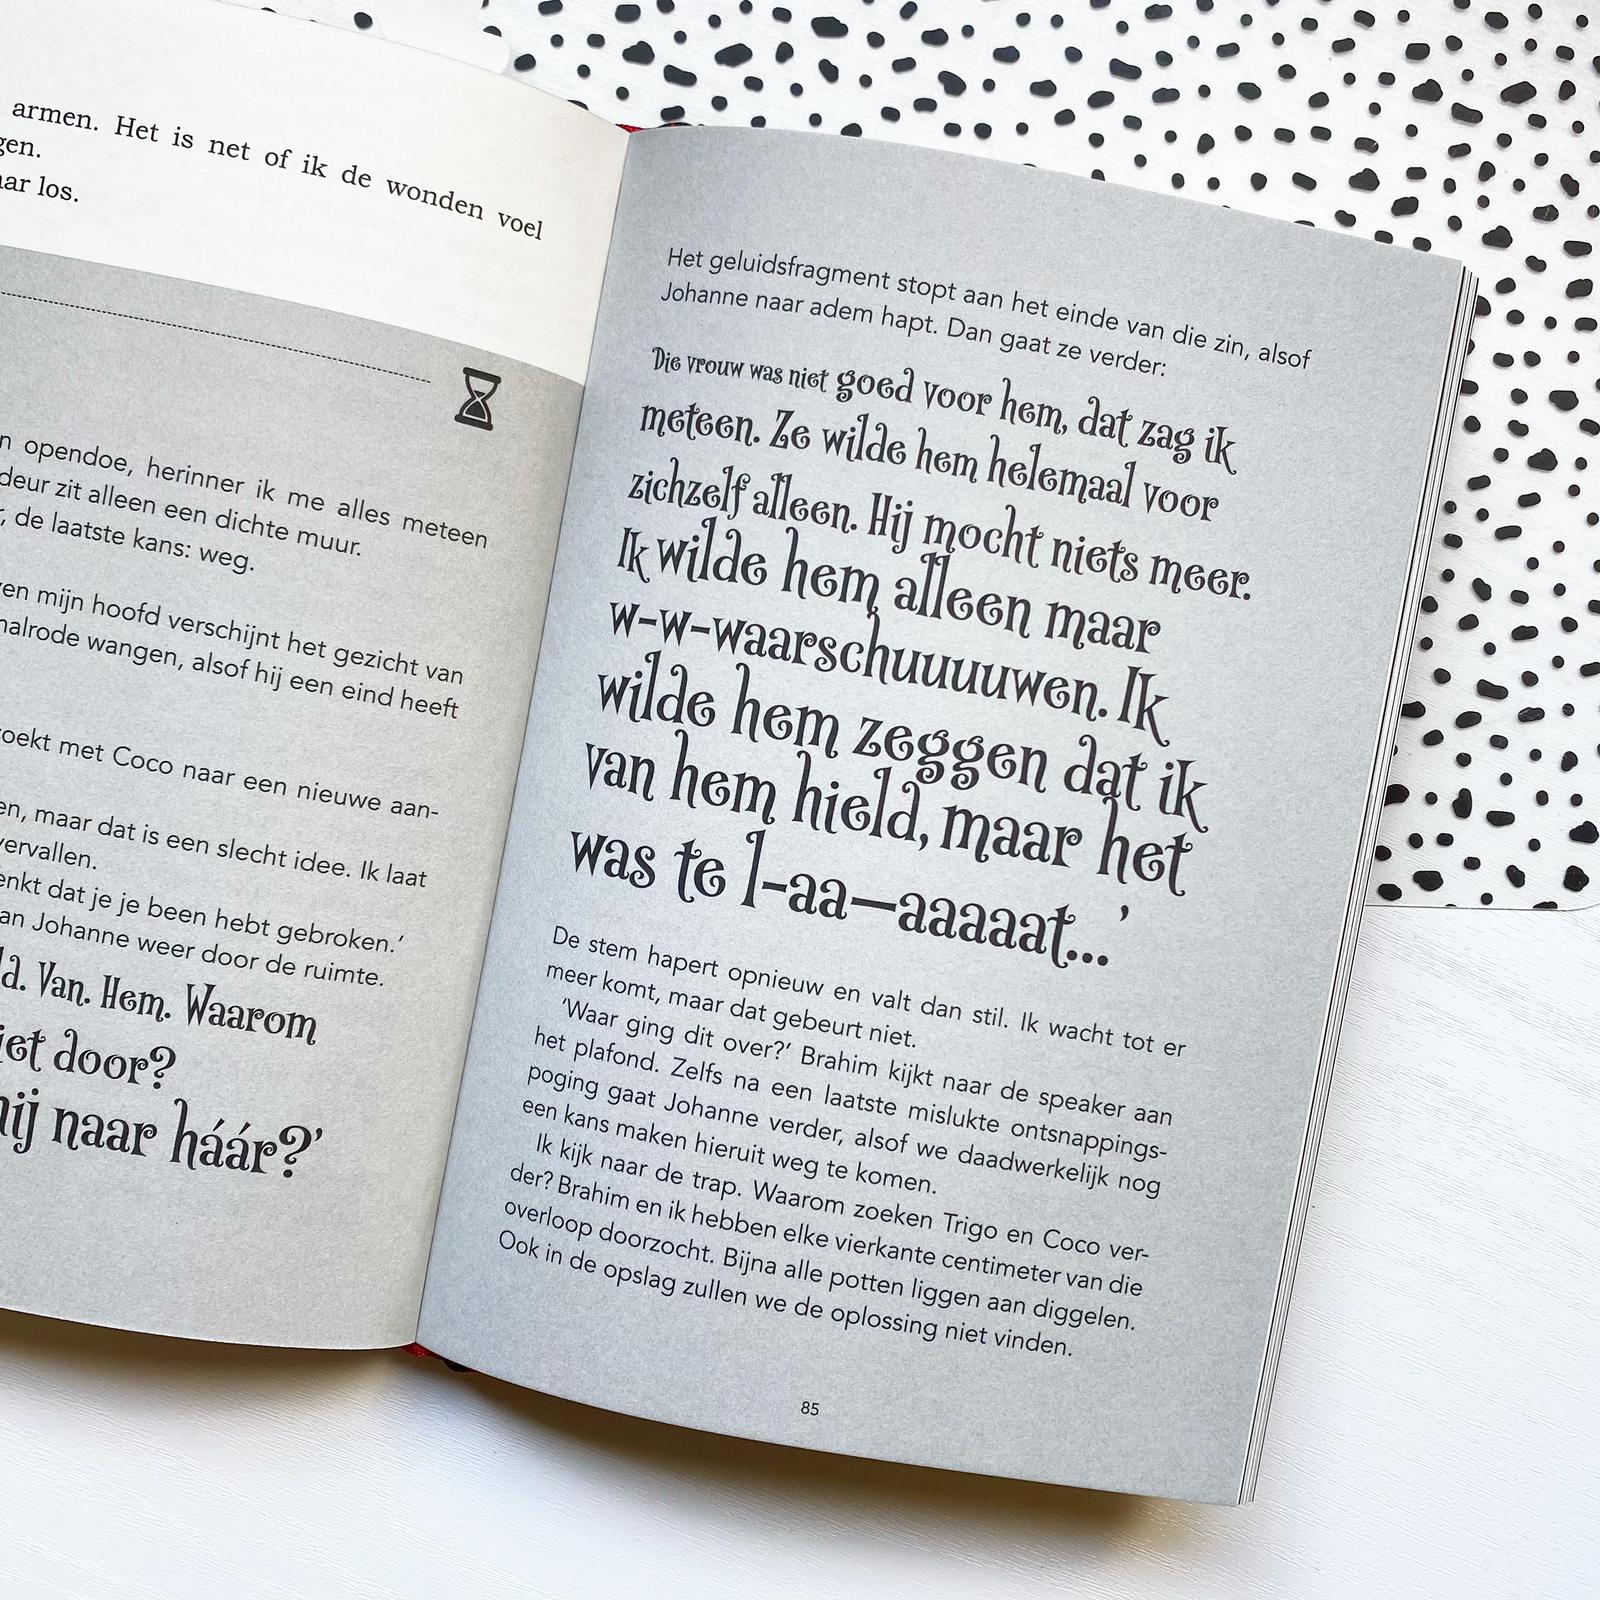 armen. Het is net of ik de wonden voel
los.
opendoe, herinner ik me alles meteen
deur zit alleen een dichte muur.
de laatste kans: weg.
mijn hoofd verschijnt het gezicht van
wangen, alsof hij een eind heeft
met Coco naar een nieuwe aan-
maar dat is een slecht idee. Ik laat
vervallen.
dat je je been hebt gebroken.’
Johanne weer door de ruimte.
Van. Hem. Waarom
door?
naar háár?’
Het geluidsfragment stopt aan het einde van die zin, alsof
Johanne naar adem hapt. Dan gaat ze verder:
Die vrouw was niet goed voor hem, dat zag ik
meteen. Ze wilde hem helemaal voor
zichzelf alleen. Hij mocht niets meer.
Ik wilde hem alleen maar
w-w-waarschuuuuuwen. Ik
wilde hem zeggen dat ik
van hem hield, maar het
was te l-aa—aaaaat...’
De stem hapert opnieuw en valt dan stil. Ik wacht tot er
meer komt, maar dat gebeurt niet.
‘Waar ging dit over?’ Brahim kijkt naar de speaker aan
het plafond. Zelfs na een laatste mislukte ontsnappings-
poging gaat Johanne verder, alsof we daadwerkelijk nog
een kans maken hieruit weg te komen.
Ik kijk naar de trap. Waarom zoeken Trigo en Coco ver-
der? Brahim en ik hebben elke vierkante centimeter van die
overloop doorzocht. Bijna alle potten liggen aan diggelen.
Ook in de opslag zullen we de oplossing niet vinden.
85